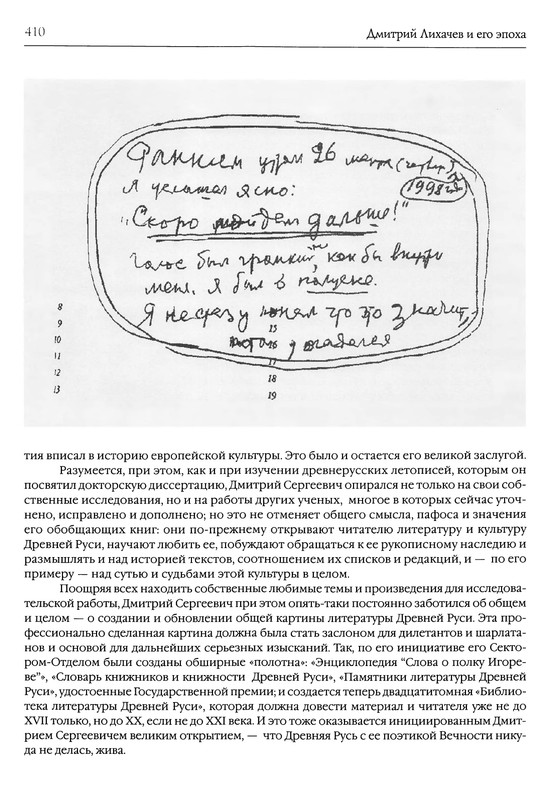 410
Дмитрий Лихачев и его эпоха
Ранним утром 26 марта (четверг)
Я услышал ясно: (1998 г.)
"Скоро пойдем дальше!"
Голос был громкий, как бы внутри
меня. Я был в полусне.
Я не сразу понял что это значит,
потом догадался
8
9
10
11
12
13
15
16
17
18
19
тия вписал в историю европейской культуры. Это было и остается его великой заслугой.
Разумеется, при этом, как и при изучении древнерусских летописей, которым он
посвятил докторскую диссертацию, Дмитрий Сергеевич опирался не только на свои соб-
ственные исследования, но и на работы других ученых, многое в которых сейчас уточ-
нено, исправлено и дополнено; но это не отменяет общего смысла, пафоса и значения
его обобщающих книг: они по-прежнему открывают читателю литературу и культуру
Древней Руси, научают любить ее, побуждают обращаться к ее рукописному наследию и
размышлять и над историей текстов, соотношением их списков и редакций, и — по его
примеру — над сутью и судьбами этой культуры в целом.
Поощряя всех находить собственные любимые темы и произведения для исследова-
тельской работы, Дмитрий Сергеевич при этом опять-таки постоянно заботился об общем
и целом — о создании и обновлении общей картины литературы Древней Руси. Эта про-
фессионально сделанная картина должна была стать заслоном для дилетантов и шарлата-
нов и основой для дальнейших серьезных изысканий. Так, по его инициативе его Секто-
ром-Отделом были созданы обширные «полотна»: «Энциклопедия "Слова о полку Игоре-
ве"», «Словарь книжников и книжности Древней Руси», «Памятники литературы Древней
Руси», удостоенные Государственной премии; и создается теперь двадцатитомная «Библио-
тека литературы Древней Руси», которая должна довести материал и читателя уже не до
XVII только, но до XX, если не до XXI века. И это тоже оказывается инициированным Дмит-
рием Сергеевичем великим открытием, — что Древняя Русь с ее поэтикой Вечности нику-
да не делась, жива.